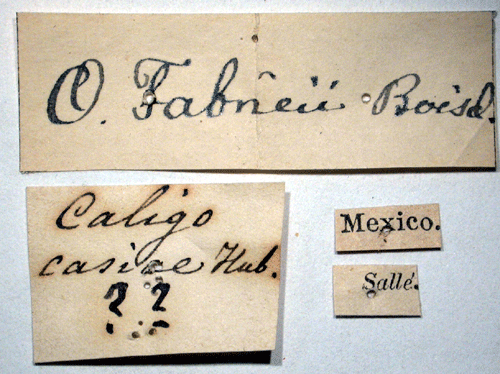 O. Fabricii Boisd.
Caligo
casiae Hub.
? ?
Mexico.
Sallé.